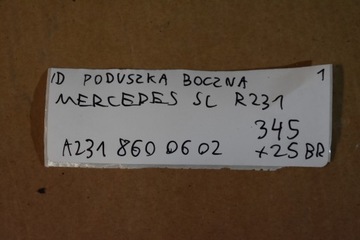 ID PODUSZKA BOCZNA 1
MERCEDES SL R231
345
A231 860 06 02 +25 BR